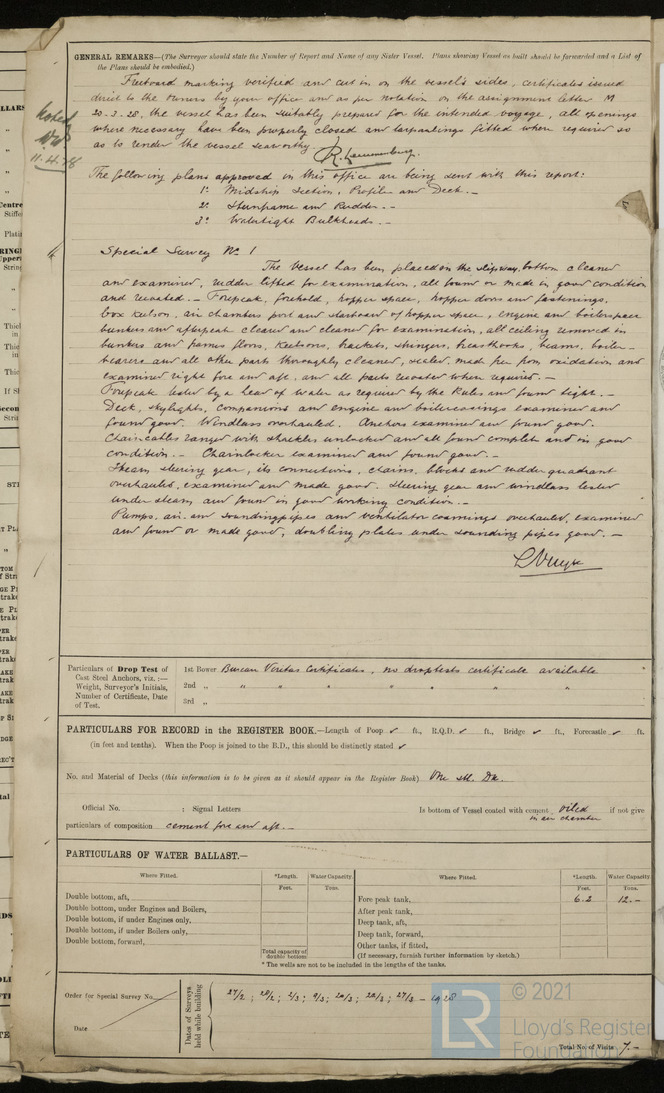 GENERAL REMARKS—(The Surveyor should state the Number of Report and Name of any Sister Vessel. Plans showing Vessel as built should be forwarded and a List of
the Plans should be embodied.)
Freeboard marking verified and cut in on the vessel's sides, certificates issued
direct to the owners by your office and as per notation on the assignment letter M
20-3-28, the vessel has been suitably prepared for the intended voyage, all openings
where necessary have been properly closed and tarpaulings fitted when required so
as to render the vessel seaworthy.
Noted
11.4.28
The following plans approved in this office are being sent with this report:
1º Midship Section, Profile and Deck.—
2º Sternframe and Rudder.—
3º Watertight Bulkheads.—
Special Survey No. 1
The vessel has been placed on the slipway, bottom cleaned
and examined, rudder lifted for examination, all found or made in good condition
and recoated.— Forepeak, forehold, hopper space, hopper doors and fastenings,
box kelson, air chambers port and starboard of hopper space, engine and boilerspace
bunkers and afterpeak cleared and cleaned for examination, all ceiling removed in
bunkers and frames, floors, keelsons, brackets, stringers, breasthooks, beams, boiler-
bearers and all other parts thoroughly cleaned, scaled, made free from oxidation and
examined right fore and aft, and all parts recoated when required.—
Forepeak tested by a head of water as required by the Rules and found tight.—
Deck, skylights, companions and engine and boilercasings examined and
found good. Windlass overhauled. Anchors examined and found good.
Chaincables ranged with shackles unlocked and all found complete and in good
condition.— Chainlocker examined and found good.—
Steam steering gear, its connections, chains, blocks and rudder quadrant
overhauled, examined and made good. Steering gear and windlass tested
under steam and found in good working condition.—
Pumps, air and soundingpipes and ventilator coamings overhauled, examined
and found or made good, doubling plates under sounding pipes good.—
Particulars of Drop Test of
Cast Steel Anchors, viz. :—
Weight, Surveyor's Initials,
Number of Certificate, Date
of Test.
1st Bower Bureau Veritas Certificates, no droptests certificate available
2nd „ „ „ „ „ „ „
3rd „
PARTICULARS FOR RECORD in the REGISTER BOOK.—Length of Poop ✓ ft., R.Q.D. ✓ ft., Bridge ✓ ft., Forecastle ✓ ft.
(in feet and tenths). When the Poop is joined to the B.D., this should be distinctly stated ✓
No. and Material of Decks (this information is to be given as it should appear in the Register Book) One St. Dk.
Official No. ; Signal Letters Is bottom of Vessel coated with cement oiled if not give
in air chamber
particulars of composition cement fore and aft.—
PARTICULARS OF WATER BALLAST.—
Where Fitted. *Length. Water Capacity. Where Fitted. *Length. Water Capacity.
Feet. Tons. Feet. Tons.
Double bottom, aft, Fore peak tank, 6.2 12.—
Double bottom, under Engines and Boilers, After peak tank,
Double bottom, if under Engines only, Deep tank, aft,
Double bottom, if under Boilers only, Deep tank, forward,
Double bottom, forward, Other tanks, if fitted,
Total capacity of double bottom (If necessary, furnish further information by sketch.)
* The wells are not to be included in the lengths of the tanks.
Order for Special Survey No.
Date
Dates of Surveys
held while building
27/2 ; 29/2 ; 2/3 ; 9/3 ; 20/3 ; 22/3 ; 27/3 — 1928
Total No. of Visits 7.—
LR
© 2021
Lloyd's Register
Foundation